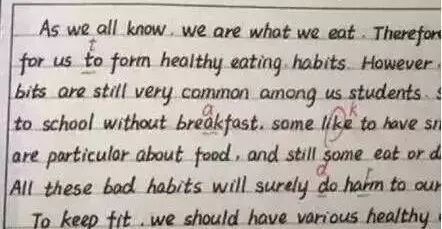 As we all know, we are what we eat. Therefore
for us to form healthy eating habits. However,
bits are still very common among us students. s
to school without breakfast, some like to have sn
are particular about food, and still some eat or d
All these bad habits will surely do harm to our
To keep fit, we should have various healthy